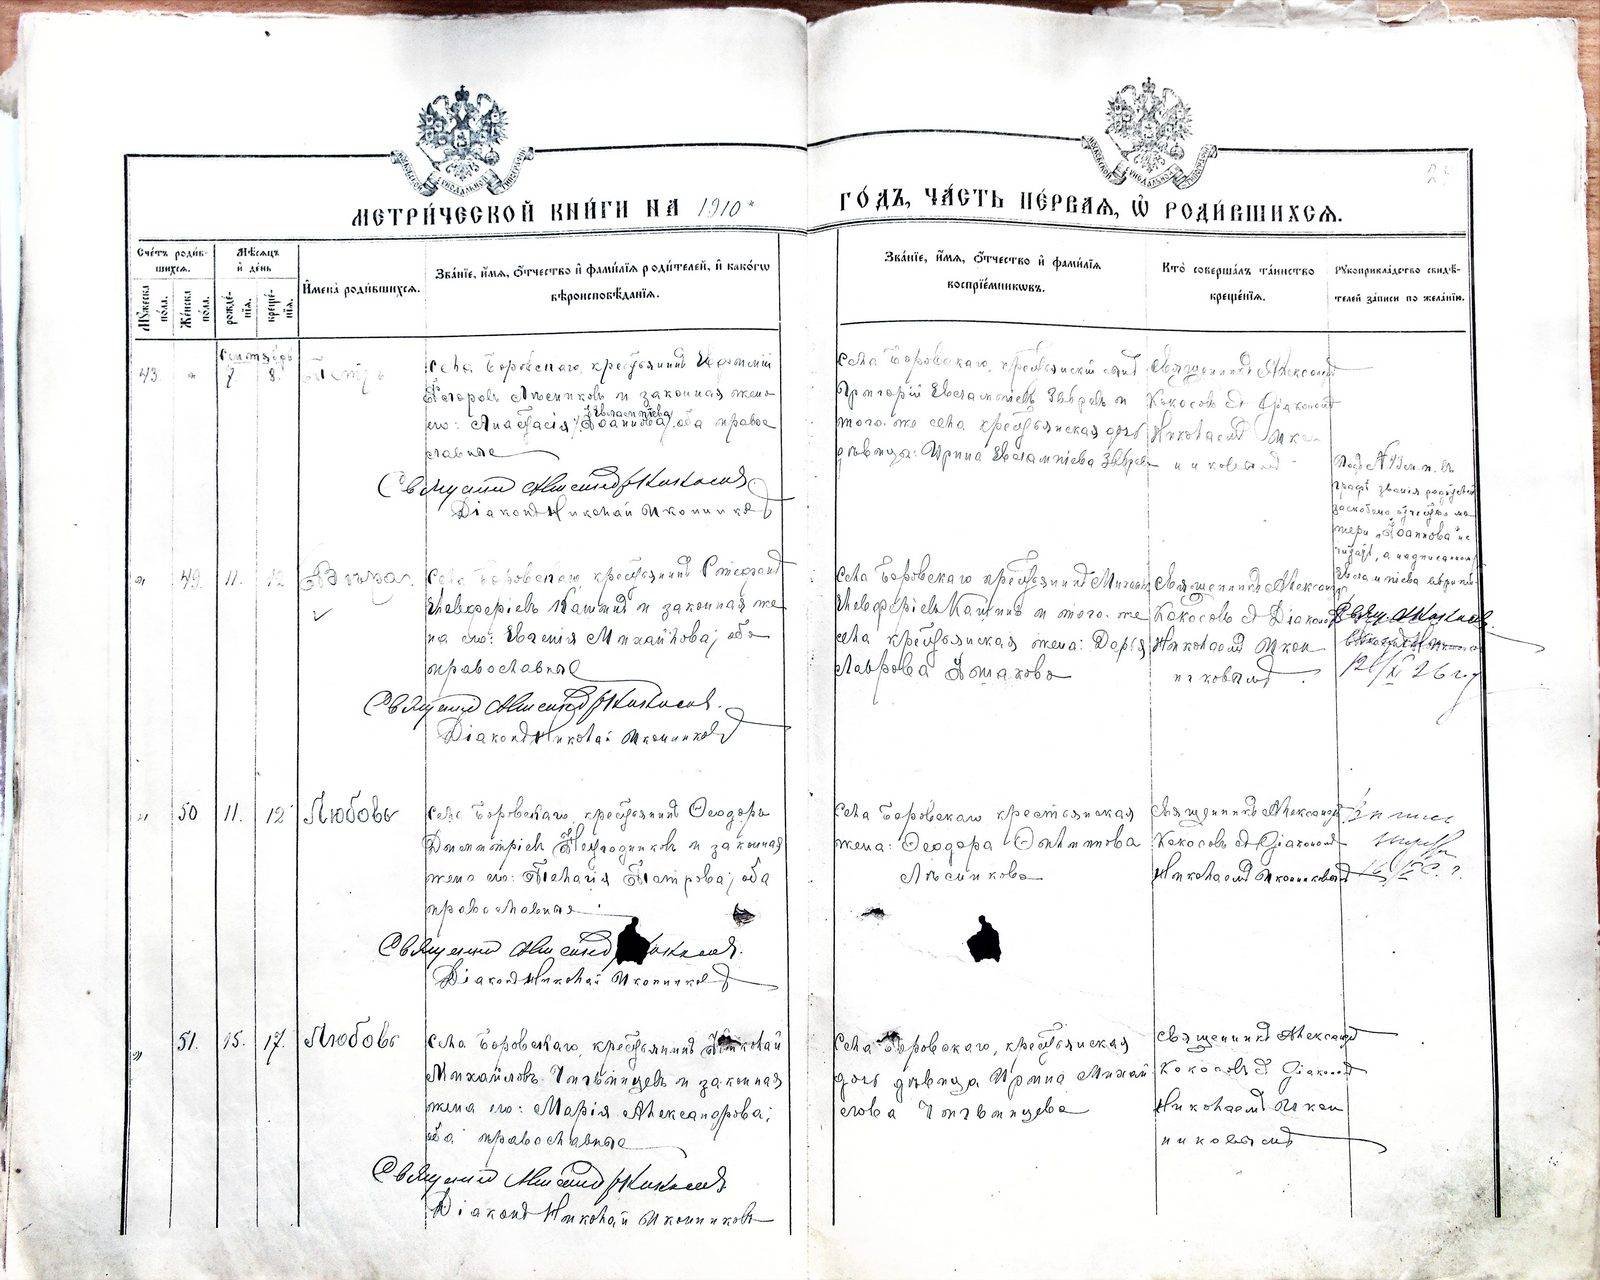 МЕТРИ́ЧЕСКОЙ КНИ́ГИ НА 1910 ГО́ДЪ, ЧА́СТЬ ПЕ́РВАѦ, Ѡ҆ РОДИ́ВШИХСѦ.
Сче́тъ роди́в-
шихсѧ.
Мꙋ́жеска по́ла.
Же́нска по́ла.
Мѣ́сѧцъ
и҆ де́нь
рожде́-
нїѧ.
креще́-
нїѧ.
И҆мена̀ роди́вшихсѧ.
Зва́нїе, и҆́мѧ, ѻ҆́тчество и҆ фами́лїѧ роди́телей, и҆ како́гѡ
вѣроисповѣ́данїѧ.
Зва́нїе, и҆́мѧ, ѻ҆́тчество и҆ фами́лїѧ
воспрїе́мникѡвъ.
Кто̀ соверша́лъ та́инство
креще́нїѧ.
Рꙋкоприкла́дство свидѣ́-
телей за́писи по жела́нїю.
Сентябрь
43. 7 8. Петръ
села Боровскаго, крестьянинъ
Егоровъ Лѣсниковъ и законная жена
его: Анастасія Евлампіева (Іоаннова) оба право
славные
Священникъ Александръ Кокосовъ
Діаконъ Николай Иконниковъ
села Боровскаго, крестьянскій сынъ
Григорій Евлампіевъ Звѣревъ и
того-же села крестьянская дочь
дѣвица: Ирина Евлампіева Звѣрева
Священникъ Александръ
Кокосовъ съ Діакономъ
Николаемъ Ико
нниковымъ
графѣ званія родителей
тери "Іоаннова" не
читать, а надписанному
49. 11. 12
Села Боровскаго, крестьянинъ Стефанъ
Елевферіевъ Кашинъ и законная же
на его: Евгенія Михайлова; оба
православные
Священникъ Александръ Кокосовъ
Діаконъ Николай Иконниковъ
села Боровскаго крестьянинъ
Елевферіевъ Кашинъ и того-же
села крестьянская жена: Дарья
Лаврова
Священникъ Александръ
Кокосовъ съ Діакономъ
Николаемъ Икон
никовымъ
50 11. 12 Любовь
села Боровскаго, крестьянинъ Ѳеодоръ
Димитріевъ и законная
жена его: Пелагія Петрова; оба
православные
Священникъ Александръ Кокосовъ
Діаконъ Николай Иконниковъ
села Боровскаго крестьянская
жена: Ѳеодора
Лѣсникова
Священникъ Александръ
Кокосовъ съ Діакономъ
Николаемъ Иконниковымъ
51. 15. 17. Любовь
села Боровскаго, крестьянинъ Николай
Михайловъ Чигвинцевъ и законная
жена его: Марія Александрова;
оба православные
Священникъ Александръ Кокосовъ
Діаконъ Николай Иконниковъ
села Боровскаго, крестьянская
дочь дѣвица Ирина Михай
лова Чигвинцева
Священникъ Александръ
Кокосовъ съ Діакономъ
Николаемъ Икон
никовымъ